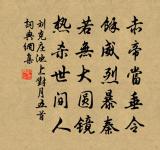 赤帝當垂令
餘威烈暴秦
若無大圓鏡
熱殺世間人
劉克庄池上對月五首
詞典網集